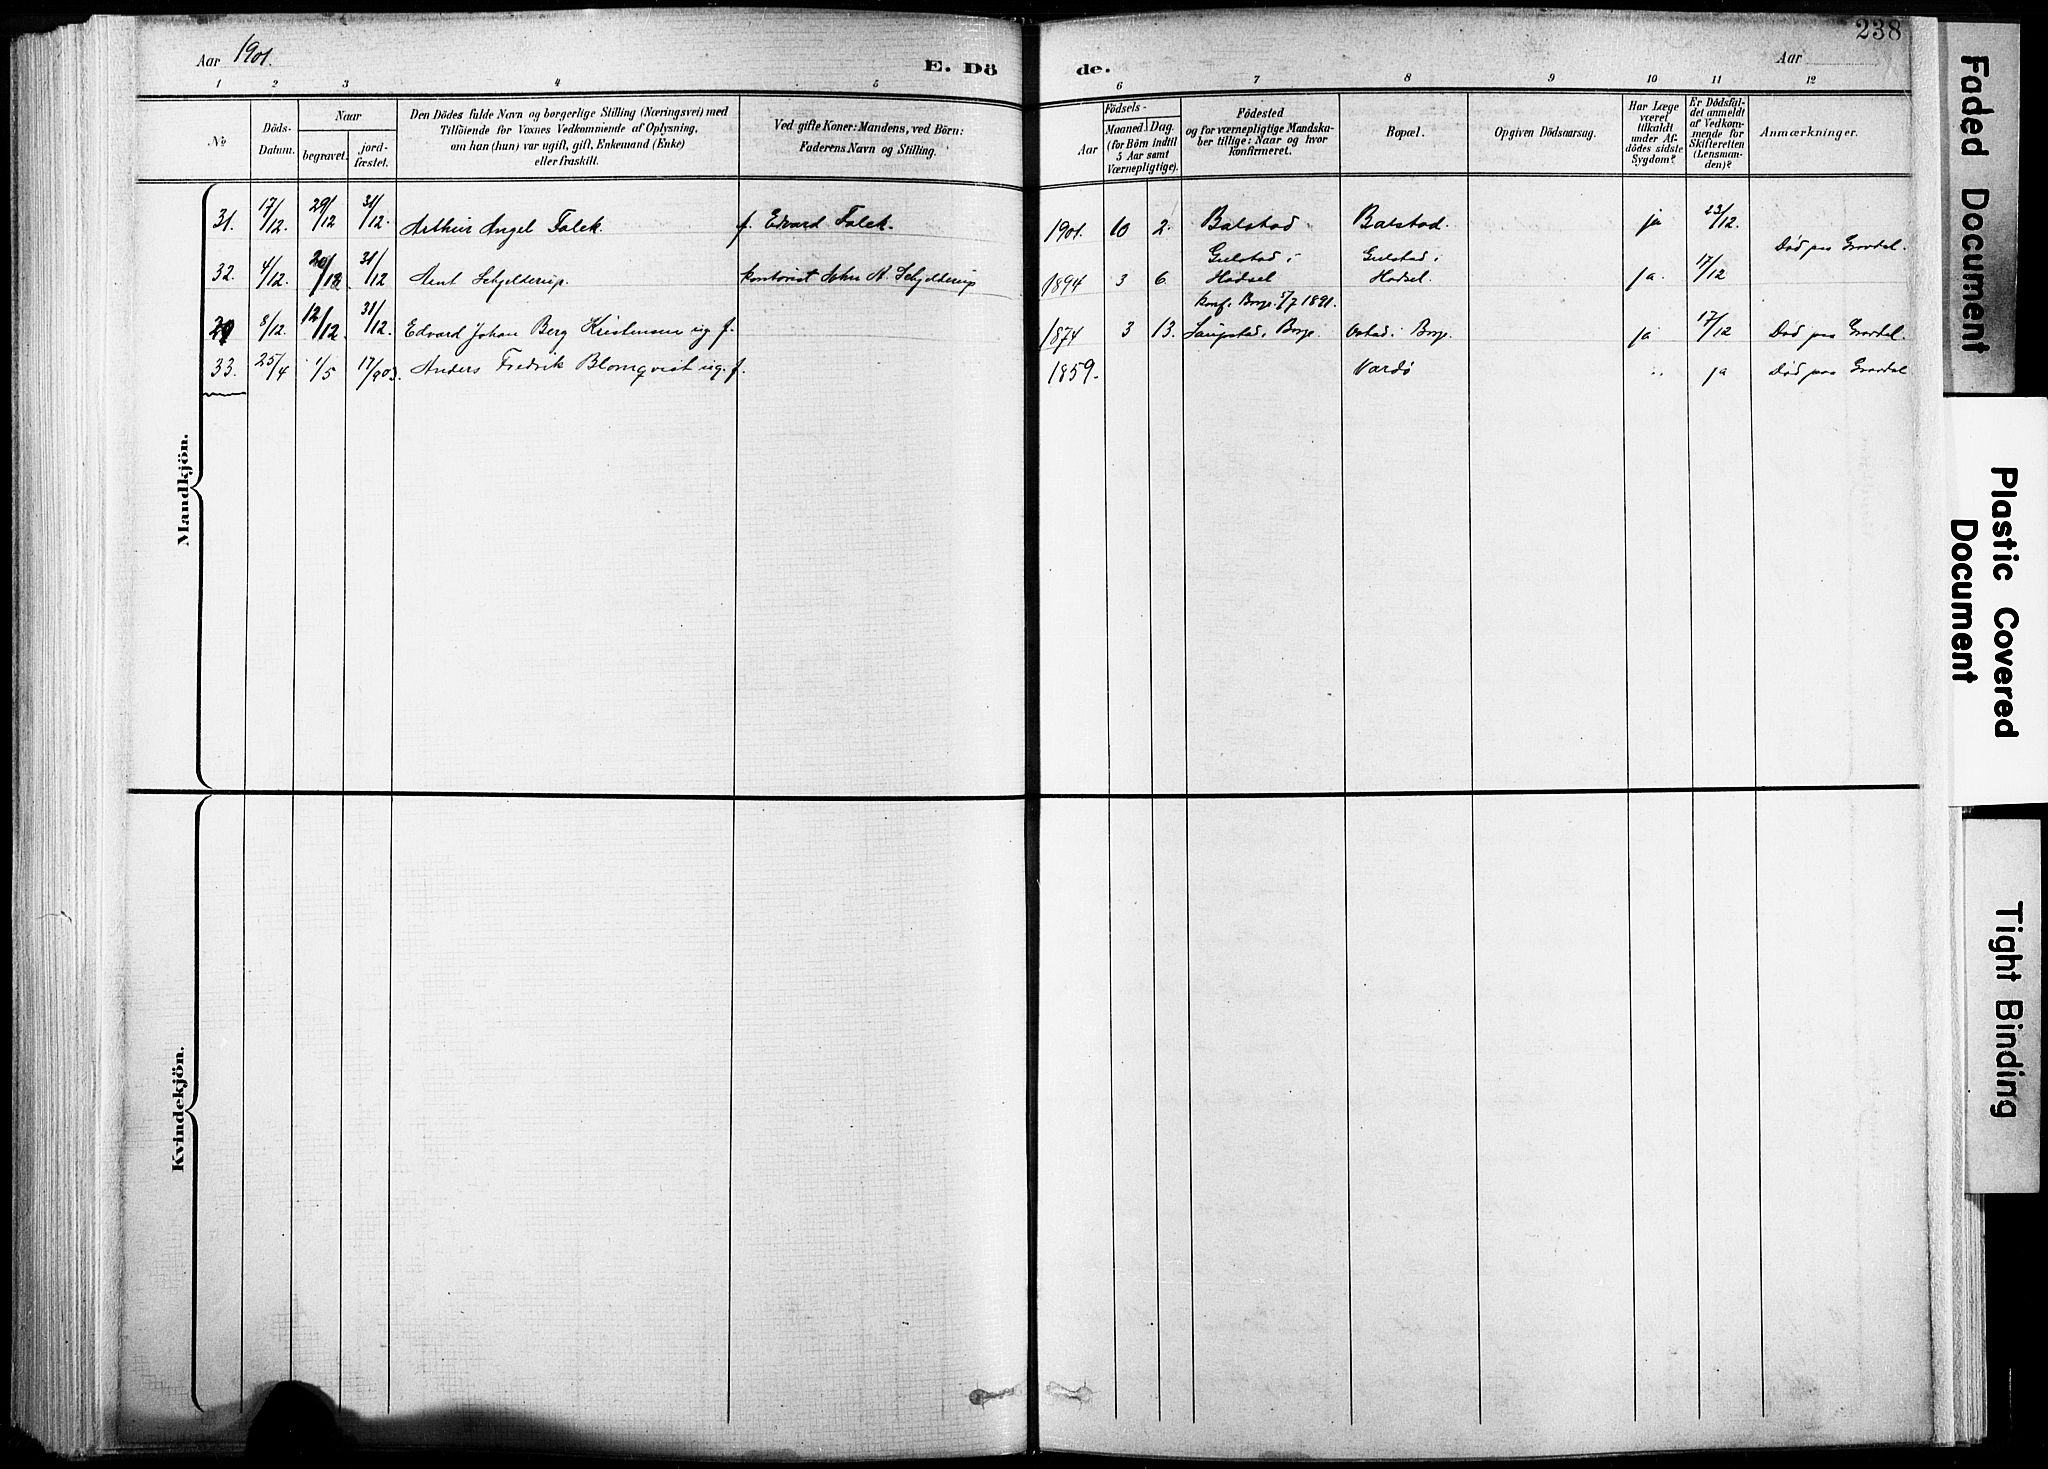 238
Aar 1901.
E. Dö
de.
Aar
1 2 3 4 5 6 7 8 9 10 11 12
No.
Döds-
Datum.
Naar
begravet.
jord-
fæstet.
Den Dödes fulde Navn og borgerlige Stilling (Næringsvei) med
Tilföiende for Voxnes Vedkommende af Oplysning,
om han (hun) var ugift, gift, Enkemand (Enke)
eller fraskilt.
Ved gifte Koner: Mandens, ved Börn:
Faderens Navn og Stilling.
Födsels-
Aar
Maaned. Dag.
(for Börn indtil
5 Aar samt
Værnepligtige).
Födested
og for værnepligtige Mandska-
ber tillige: Naar og hvor
Konfirmeret.
Bopæl.
Opgiven Dödsaarsag.
Har Læge
været
tilkaldt
under Af-
dödes sidste
Sygdom?
Er Dödsfal-
det anmeldt
af Vedkom-
mende for
Skifteretten
(Lensman-
den)?
Anmærkninger.
Mandkjön.
31. 17/12. 29/12 31/12. Arthur Angel Falck. f. Edvard Falck. 1901. 10 2. Balstad Balstad. ja 23/12.
Død paa Gravdal.
Gulstad i Gulstad i
32. 4/12. 20/12. 31/12 Arnt Schjelderup. kontorist John A. Schjelderup 1894 3 6. Hadsel Hadsel. ja. 17/12
konf. Borge 5/7 1891.
29 8/12. 12/12 31/12. Edvard Johan Berg Kristensen ug f. 1874 3 13. i Borge. i Borge. ja 17/12 Død paa Gravdal.
33. 25/4 1/5 17/903. Anders Fredrik Blomqvist ug. f. 1859. Vardø " ja Død paa Gravdal
Kvindekjön.
Faded Document
Plastic Covered
Document
Tight Binding